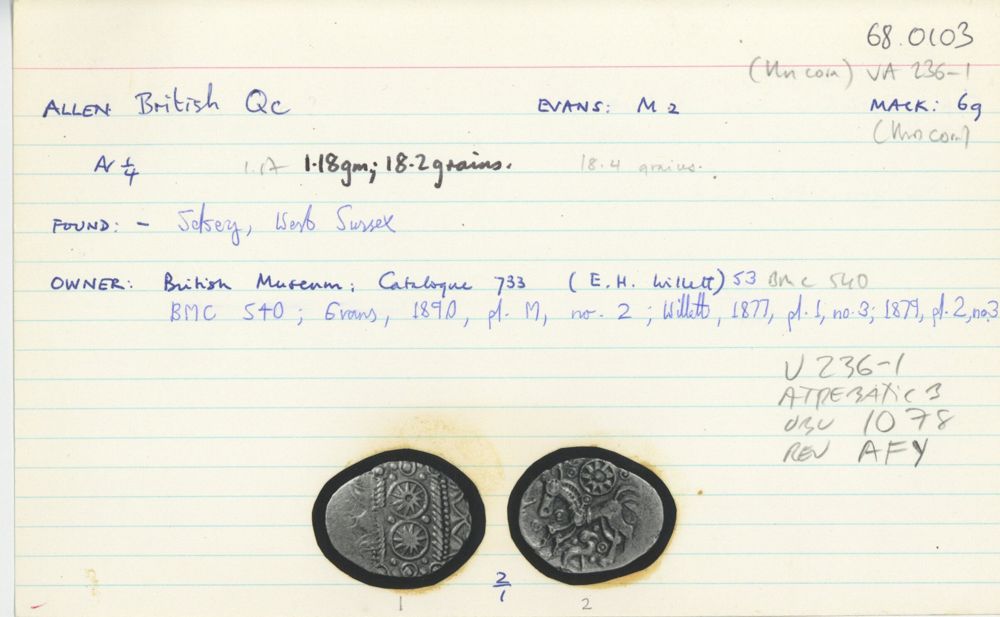 68.0103
(Uncorn) VA 236-1
ALLEN British Qc EVANS: M 2 MACK: 69
(Uncorn)
AV 1/4 1.17 1.18gm; 18.2 grains. 18.4 grains.
FOUND: - Selsey, West Sussex
OWNER: British Museum; Catalogue 733 (E.H. Willett) 53 BMC 540
BMC 540; Evans, 1890, pl. M, no. 2; Willett, 1877, pl. 1, no. 3; 1879, pl. 2, no. 3
V 236-1
ATREBATIC 3
OBV 1078
REV AFY
2/1
1 2